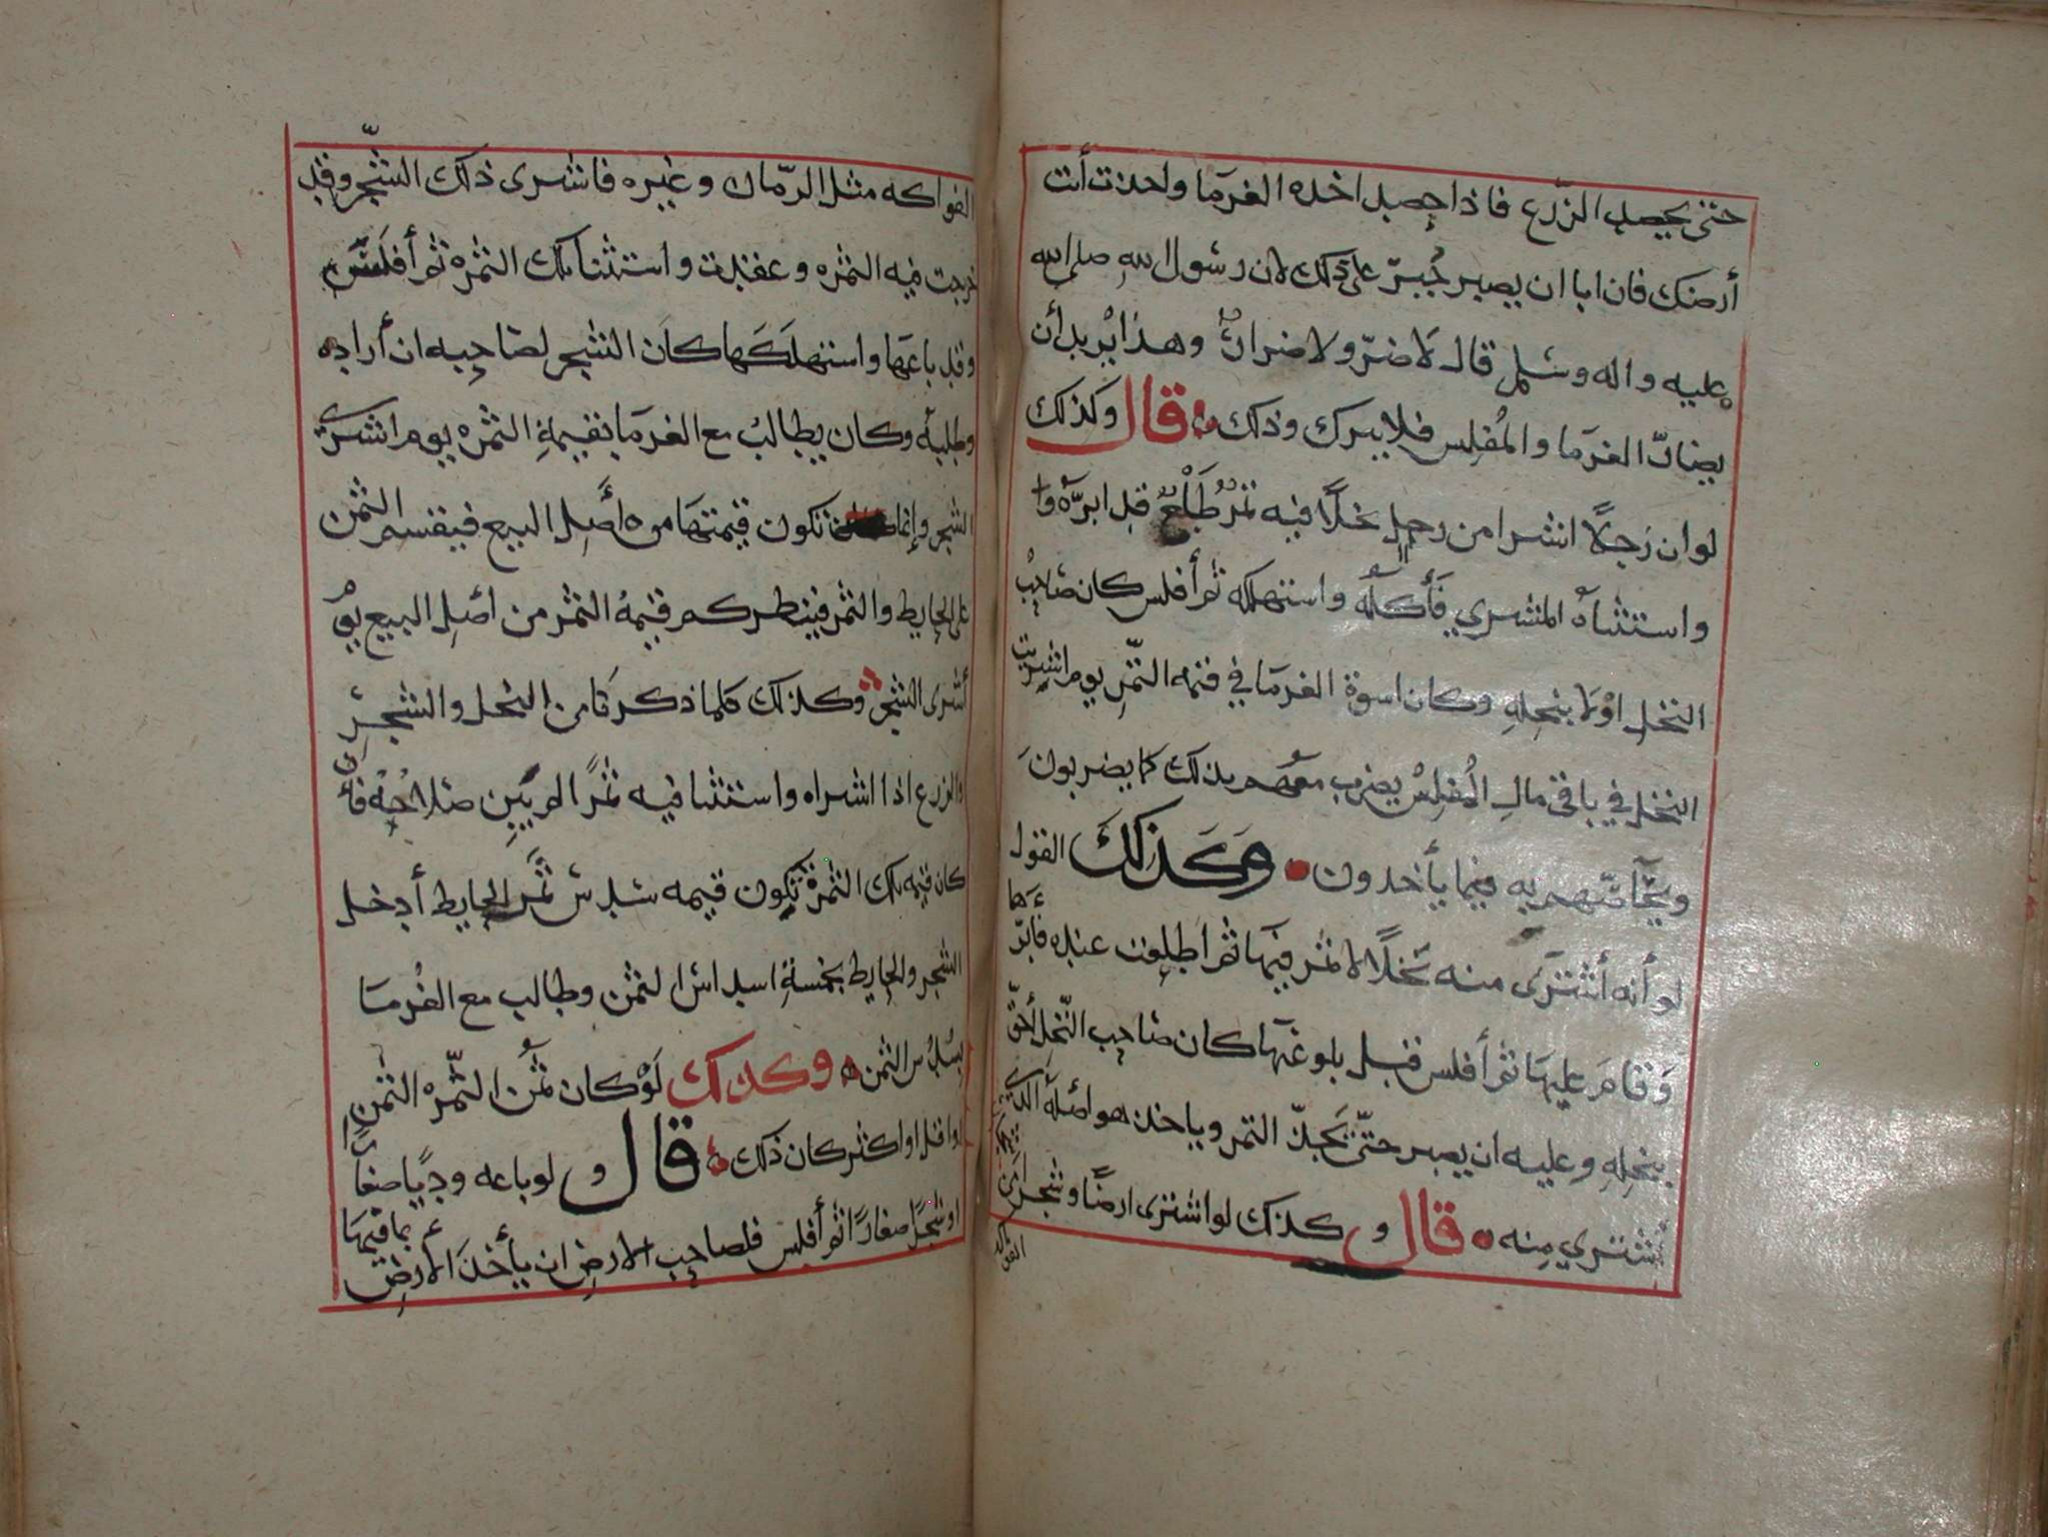 حتى يحصد الزّرع فاذا حصد اخذه الغرما واخذت أنت
أرضك فان ابا ان يصبر جُبرّ على ذلك لان رسول الله صلى الله
عليه واله وسلم قال لا ضرّ ولا ضرار وهذا يريد أن
يضارّ الغرما والمُفلس فلا يترك وذلك قال وكذلك
لو ان رَجلاً اشترا من رجل نخلاً فيه تمرٌ طَلْعٌ قد ابرّه وا
واستثناه المشتري فَأَكله واستهلكه ثم أفلس كان صَاحبُ
النخل اوْلا بنخلِهِ وكان اسوة الغرما في قيمه التّمرِ يوم اشتريت
النخل في باقي مالِ المُفلسْ يضرب معهم بذلك كما يضربونَ
ويحآصّهم به فيما يأخذون وَكَذلكَ القول
لو أنه أشترَى منه نخلاً لا ثمر فيهَا ثم اطلعت عنده فأبّرهَا
وَقامَ عليهَا ثم أفلس قبل بلوغهَا كان صَاحب النّخل أحقّ
بنخلِهِ وعليه ان يصبر حتّى يَجدّ التمر وياخذ هو اصله الذي
أشتري مِنه قال و كذلك لو اشترى ارضًا وشجراً من
الفواكه مثل الرّمان وغيره فاشترى ذلك الشّجر وقد
خرجت فيه الثمره وعقدت واستثنا تلك الثمره ثم أفلَس
وقد باعَهَا واستهلَكَهَا كان الشجر لصَاحِبِه ان أراده
وطلبه وكان يطالبُ مع الغرمَا بقيمةِ الثمره يوم اشترى
الشجر وإنما تكون قيمتهَا من أصل البيع فيقسم الثمن
على الحايط والثمر فينظر كم قيمة الثمر من اصْلِ البيع يومَ
أشترى الشجر وكذلك كلما ذكرنَا من النخل والشجر
والزرع اذا اشتراه واستثنا فيه ثمرًا لم يبين صَلاحُهُ فان
كان قيمه تلك الثمرة تكون قيمه سُدس ثمَن الحايط أخذ
الشجر والحايط بخمسةِ اسداس الثمن وطالب مع الغُرمَا
بسُدُس الثمن وكذلك لَوْ كان ثمُن الثّمره الثمن
او اقل او اكثر كان ذلك قال و لو باعه وَدِيًا صغارًا
او شجرًا صغارًا ثم أفلس فلصَاحِب الارضِ ان يأخذَ الأرض بما فيهَا